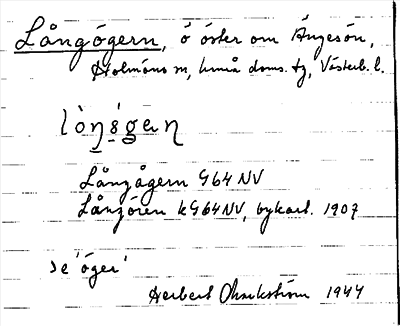 Långögern, ö öster om Ängesön,
Holmöns sn, Umeå doms. tg, Västerb. l.
Långågern G64 NV
Långören k G64 NV, bykart. 1907
Se 'öger'
Herbert 1944